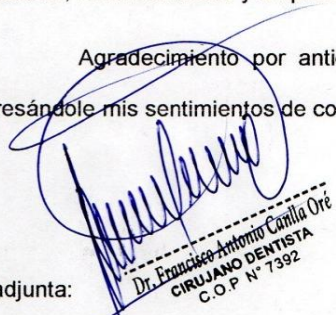 Agradecimiento por anti
resándole mis sentimientos de co
adjunta:
Dr. Francisco Antonio Canlla Oré
CIRUJANO DENTISTA
C.O.P N° 7392